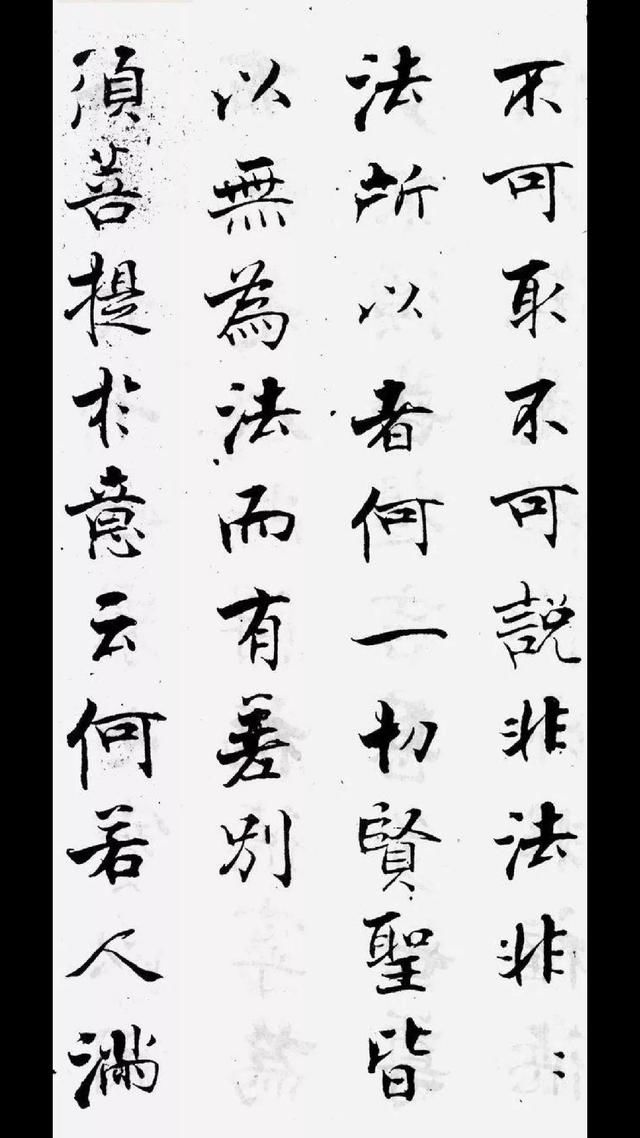 不可取不可説非法非〻
法所以者何一切賢聖皆
以無為法而有差別
須菩提於意云何若人滿